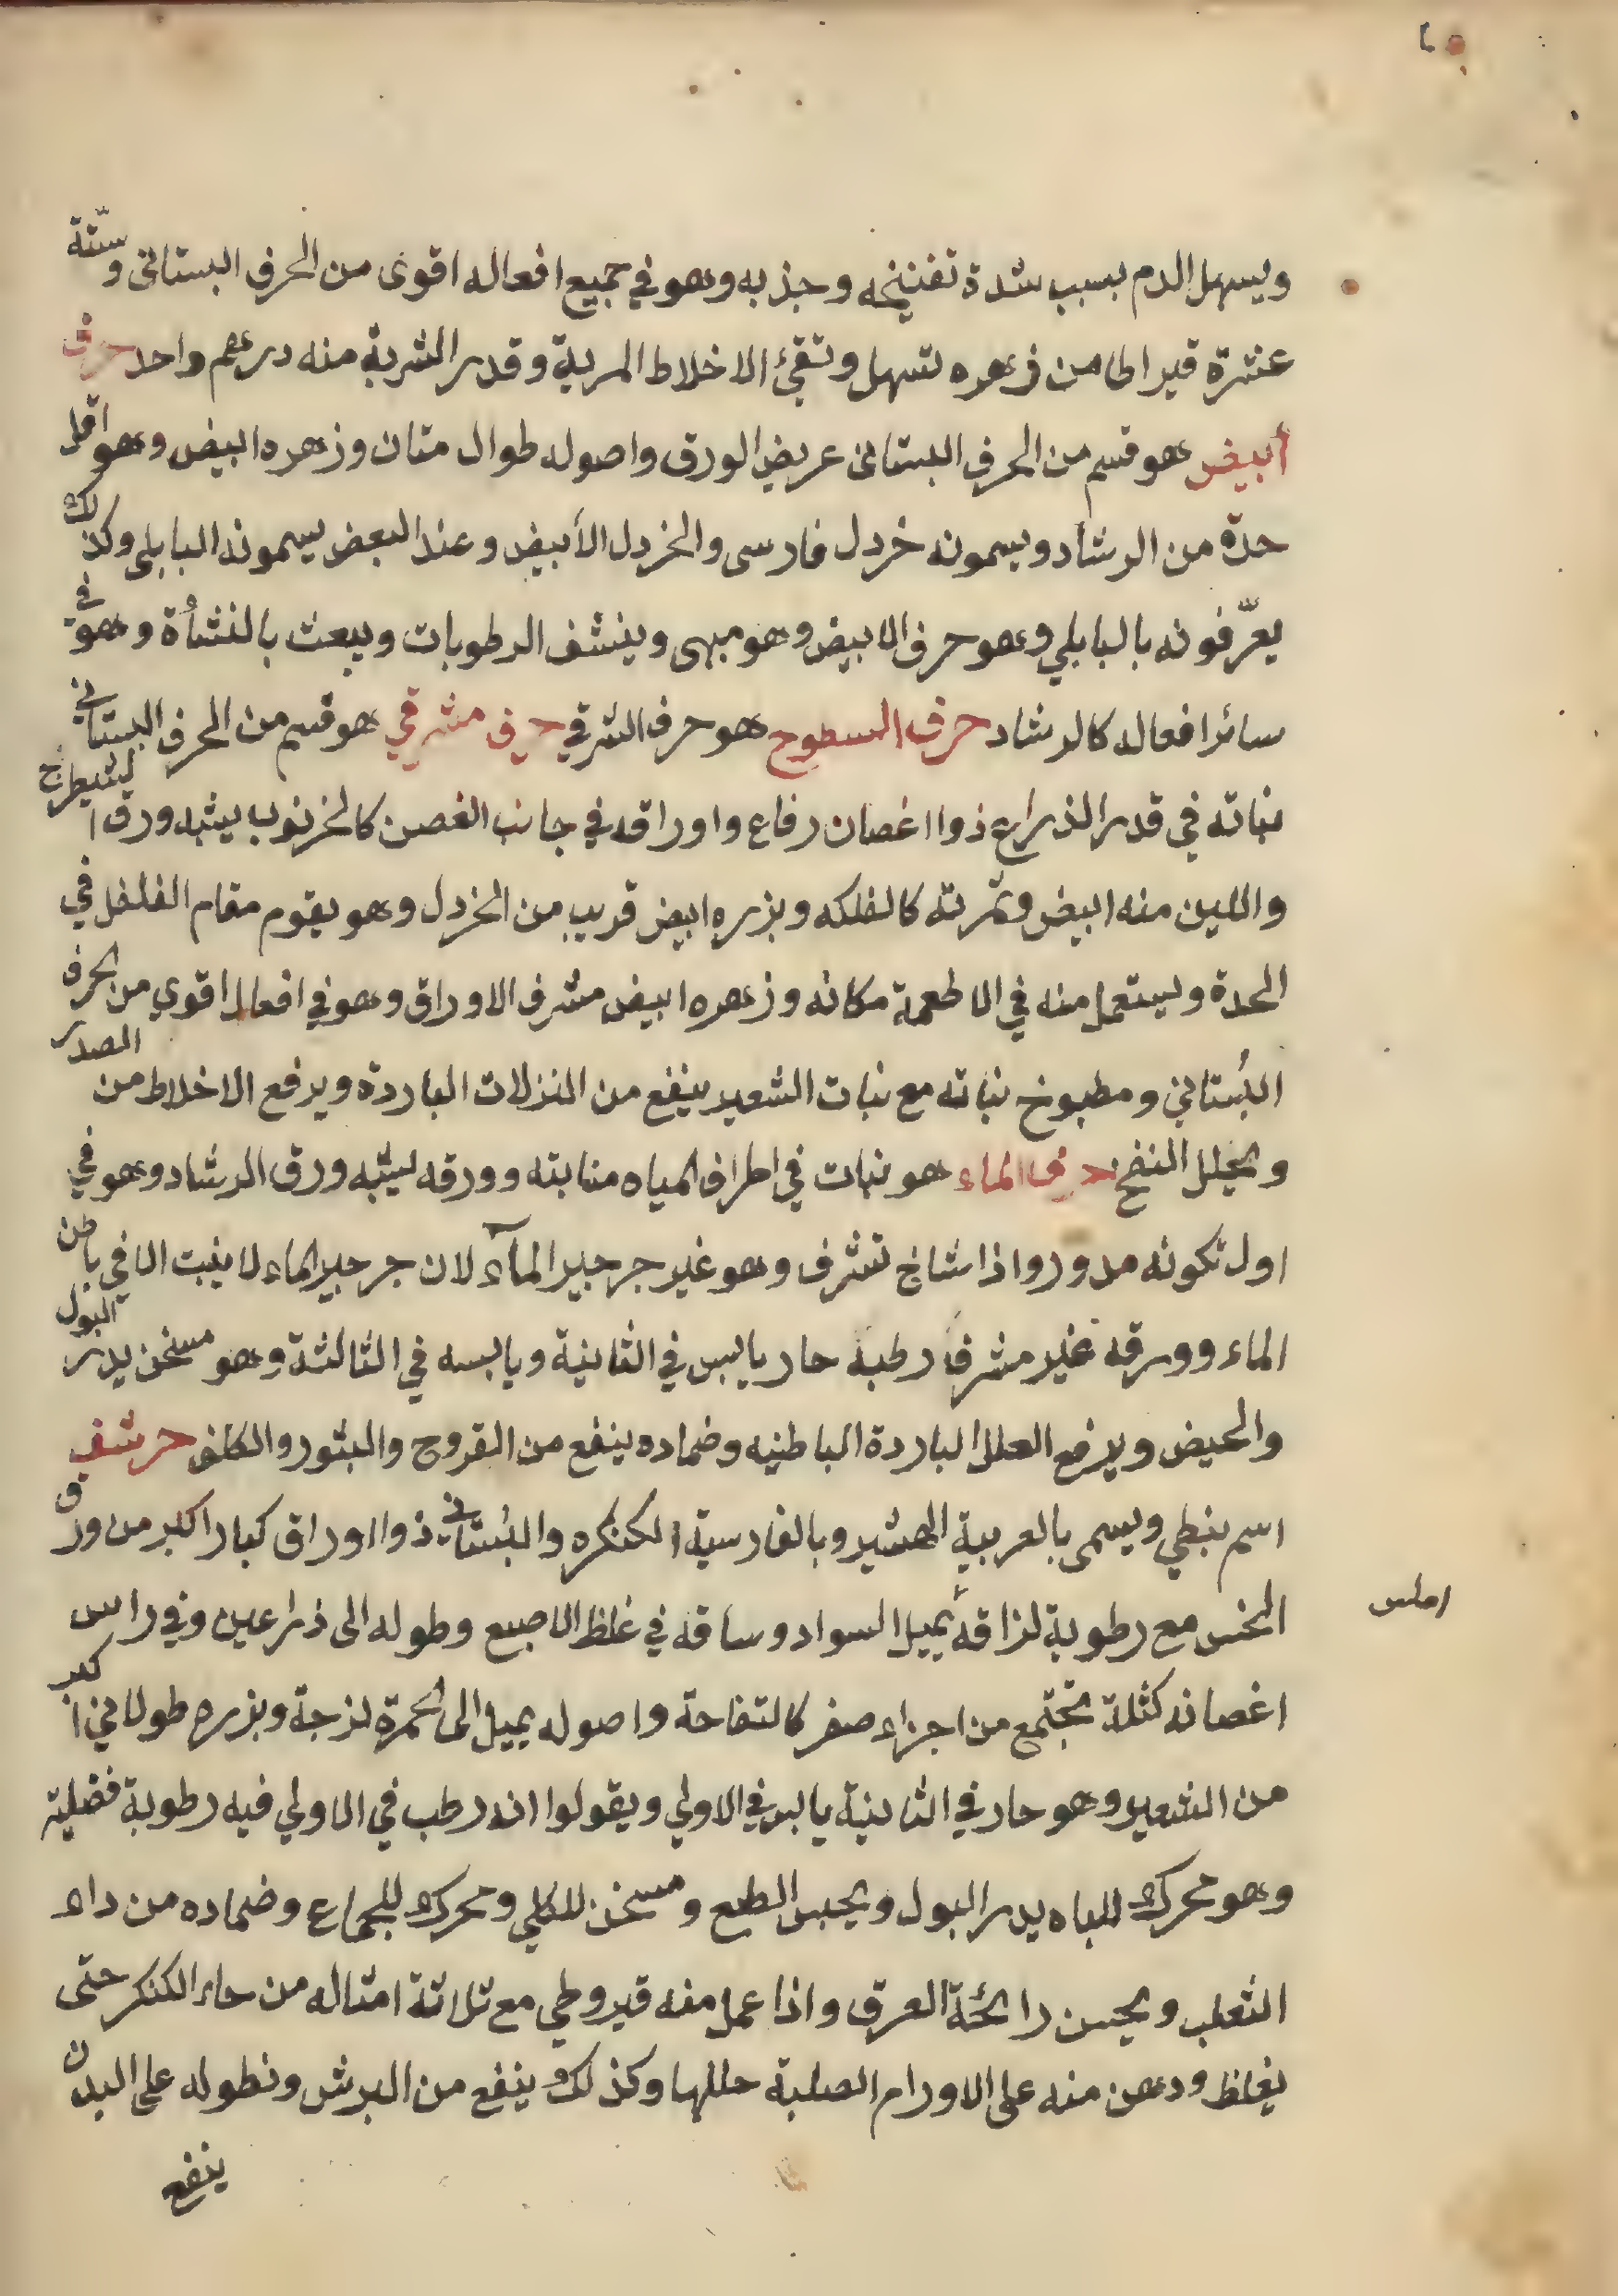 ويسهل الدم بسبب شدة تفتيحه وجذبه وهو في جميع افعاله اقوى من الحرف البستانى وستّة
عشرة قيراطا من زهره تسهل وتقئ الاخلاط المرية وقدر الشربة منه درهم واحد حرف
أبيض هو قسم من الحرف البستانى عريض الورق واصوله طوال متان وزهره ابيض وهو اقل
حدة من الرشاد ويسمونه خردل فارسى والخردل الأبيض وعند البعض يسمونه البابلى وكذلك
يعرّفونه بالبابلي وهو حرف الابيض وهو مبهى وينشف الرطوبات ويبعث بالنشأة وهو في
سائر افعاله كالرشاد حرف السطوح هو حرف الشرقي حرف مشرقي هو قسم من الحرف البستاني
نباته في قدر الذراع ذوا اغصان رفاع واوراقه في جانب الغصن كالخرنوب يشبه ورق الشيطرج
واللين منه ابيض وثمرته كالفلكه وبزره ابيض قريب من الخردل وهو يقوم مقام الفلفل في
الحدة ويستعمل منه في الاطعمة مكانه وزهره ابيض مشرف الاوراق وهو في افعاله اقوي من الحرف
البُستاني ومطبوخ نباته مع نبات الشعير ينفع من النزلات الباردة ويرفع الاخلاط من الصدر
ويحلل النفخ حرف الماء هو نبات في اطراف المياه منابته وورقه يشبه ورق الرشاد وهو في
اول تكونه مدور واذا شاخ تشرف وهو غير جرجير المآء لان جرجير الماء لا ينبت الا في باطن
الماء وورقه غير مشرف رطبه حار يابس في الثانية ويابسه في الثالثة وهو مسخن يدر البول
والحيض ويرفع العلل الباردة الباطنيه وضماده ينفع من القروح والبثور والكلف حرشف
اسم نبطي ويسمى بالعربية الهشير وبالفارسية الكنكره والبُستاني ذوا اوراق كبار اكبر من ورق
الخس مع رطوبة لزاقه يميل السواد وساقه في غلظ الاصبع وطوله الى ذراعين وفي راس
املس
اغصانه كثلة تجتمع من اجزاء صفر كالتفاحة واصوله يميل الى الحمرة لزجة وبزره طولاني اكبر
من الشعير وهو حار في الثانية يابس في الاولي ويقولوا انه رطب في الاولي فيه رطوبة فضلية
وهو محرك للباه يدر البول ويحبس الطبع ومسخن للكلي ومحرك للجماع وضماده من داء
الثعلب ويحسن رائحة العرق واذا عمل منه قيروطي مع ثلاثة امثاله من ماء الكنكر حتى
يغلظ ودهن منه على الاورام الصلبة حللها وكذلك ينفع من البرش ونطوله على البدن
ينفع